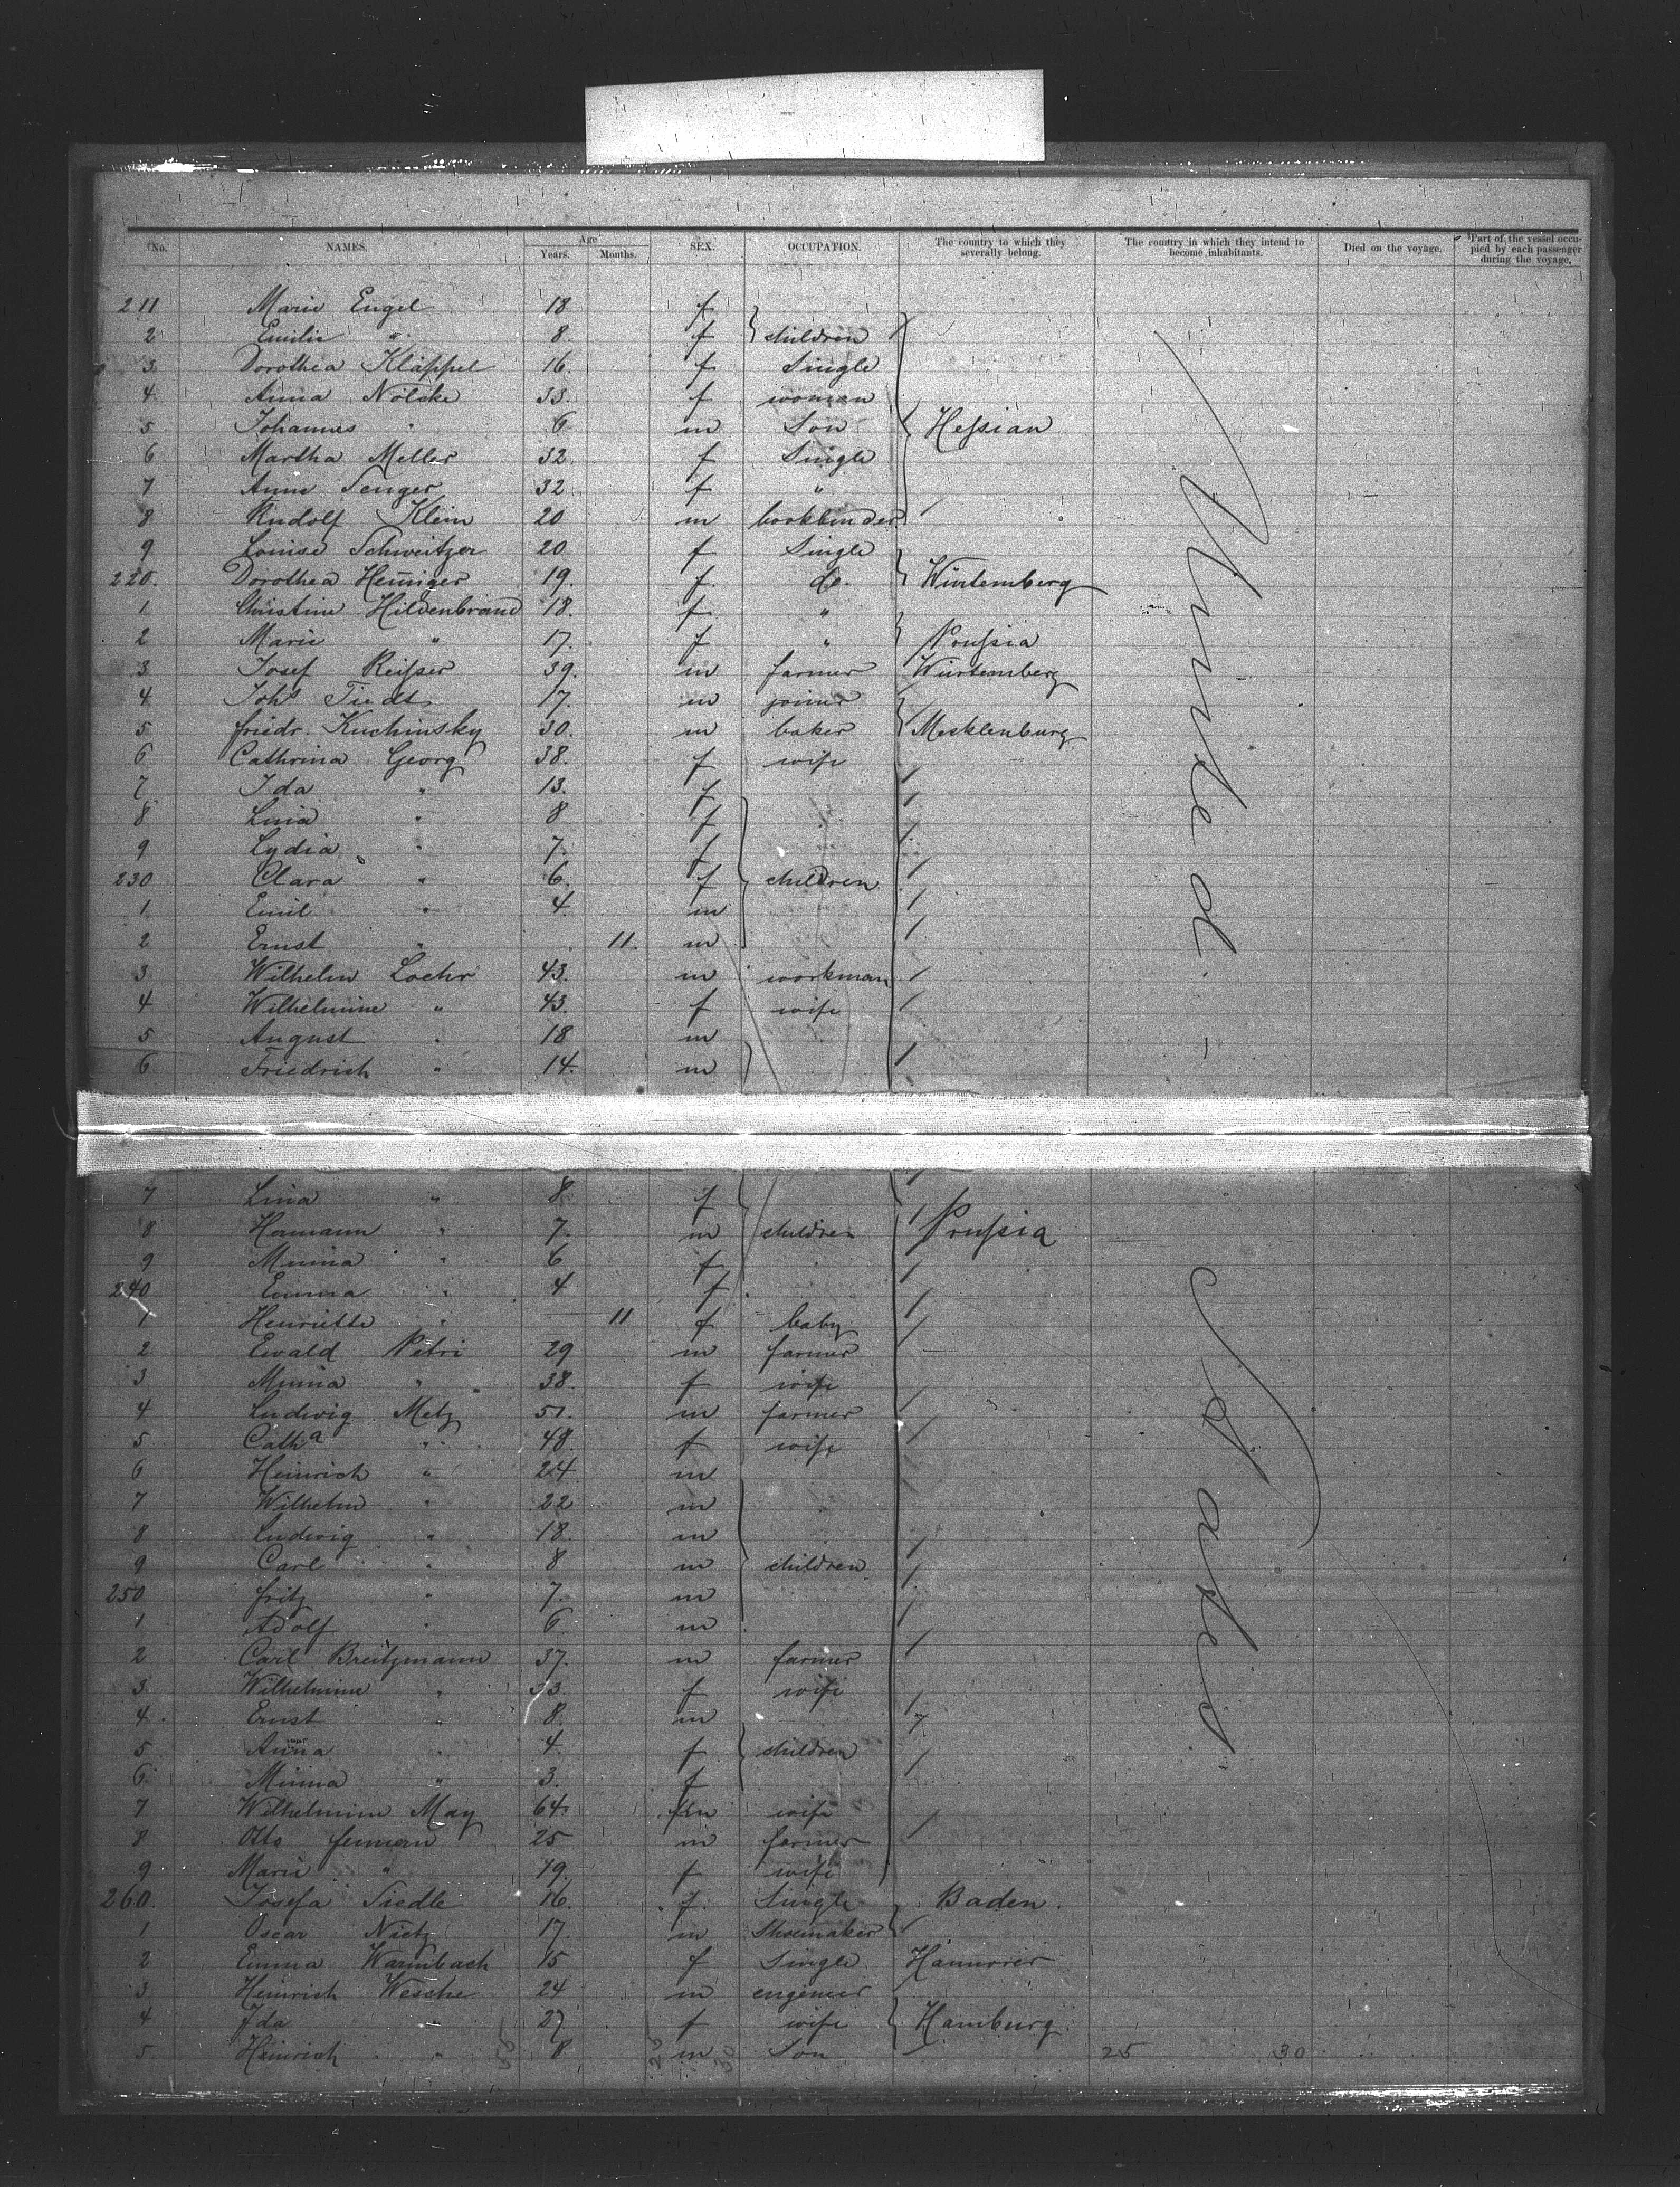 No. NAMES. Age Years. Months. SEX. OCCUPATION. The country to which they severally belong. The country in which they intend to become inhabitants. Died on the voyage. Part of the vessel occupied by each passenger during the voyage.
211 Marie Engel 18 f
2 Emilie " 8 f children
3 Dorothea Kläppel 16 f Single
4 Anna Nölcke 33 f woman
5 Johannes " 6 m Son Heßian
6 Martha Meller 32 f Single
7 Anna Senger 32 f "
8 Rudolf Klein 20 m bookbinder
9 Louise Schweitzer 20 f Single
220. Dorothea Heiniger 19. f. do. Würtemberg
1 Christine Hildenbrand 18. f "
2 Marie " 17. f " Prußia
3 Josef Reißer 39. m farmer Würtemberg
4 Johs Tiedt 17. m joiner
5 Friedr. Kuchinsky 30. m baker Mecklenburg
6 Cathrina Georg 38. f wife
7 Ida " 13. f
8 Lina " 8 f
9 Lydia " 7. f
230 Clara " 6. f children
1 Emil " 4 m
2 Ernst " 11. m
3 Wilhelm Loehr 43. m workman
4 Wilhelmine " 43 f wife
5 August " 18 m
6 Friedrich " 14. m
7 Lina " 8 f
8 Hermann " 7. m children Prußia
9 Minna " 6 f
240 Emma " 4 f
1 Henriette " 11 f baby
2 Ewald Petri 29 m farmer
3 Minna " 38. f wife
4 Ludwig Metz 51. m farmer
5 Catha " 48. f wife
6 Heinrich " 24 m
7 Wilhelm " 22 m
8 Ludwig " 18. m
9 Carl " 8 m children
250 Fritz " 7. m
1 Adolf " 6. m
2 Carl Breitzmann 37. m farmer
3 Wilhelmine " 33. f wife
4 Ernst " 8. m
5 Anna " 4. f children
6 Minna " 3. f
7 Wilhelmine May 64. wife
8 Otto 25 m farmer
9 Marie " 19 f wife
260. Josefa Siedle 16. f. Single Baden.
1 Oscar Nietz 17. m Shoemaker
2 Emma Warmbach 15 f Single Hannover
3 Heinrich Wesche 24 m engineer
4 Ida " 27 f wife Hamburg
5 Heinrich " 8 m Son 25 30
United States